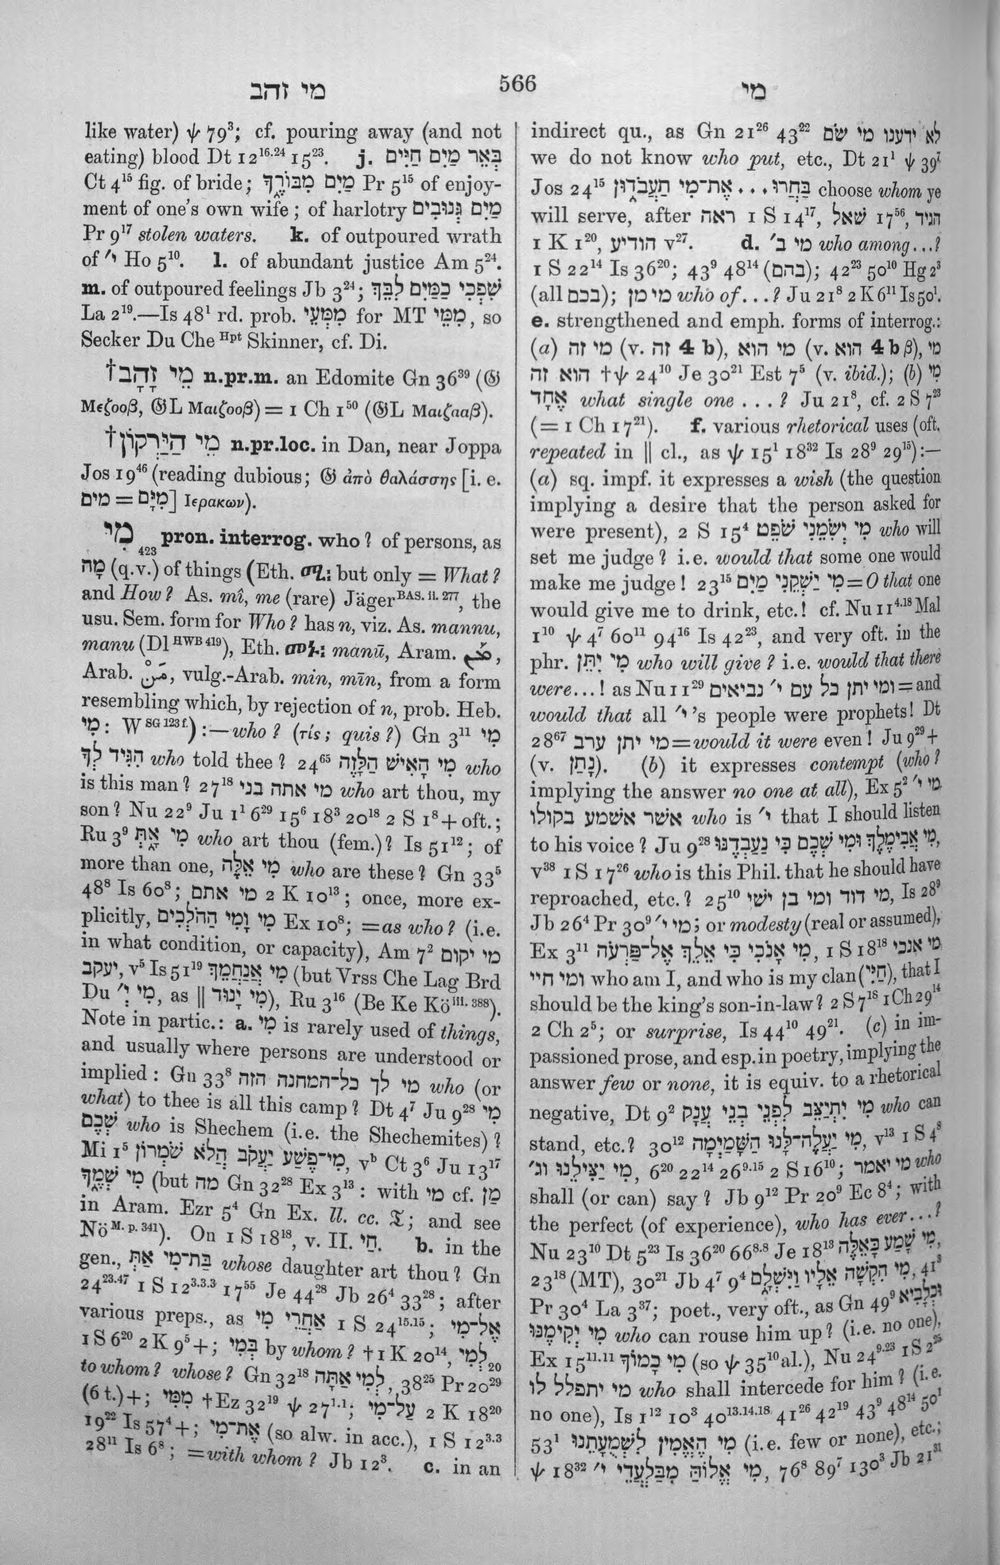 מי זהב
566
מי
like water) ψ 79³; cf. pouring away (and not
eating) blood Dt 12¹⁶·²⁴ 15²³. j. בְּאֵר מַיִם חַיִּים
Ct 4¹⁵ fig. of bride; מַיִם מִבּוֹרֶךָ Pr 5¹⁵ of enjoy-
ment of one's own wife; of harlotry מַיִם גְּנוּבִים
Pr 9¹⁷ stolen waters. k. of outpoured wrath
of י׳ Ho 5¹⁰. l. of abundant justice Am 5²⁴.
m. of outpoured feelings Jb 3²⁴; שִׁפְכִי כַמַּיִם לִבֵּךְ
La 2¹⁹.—Is 48¹ rd. prob. מִמְּעֵי for MT מִמֵּי, so
Secker Du Che ᴴᵖᵗ Skinner, cf. Di.
†מֵי זָהָב n.pr.m. an Edomite Gn 36³⁹ (𝔊
Μεζοοβ, 𝔊L Μαιζοοβ) = 1 Ch 1⁵⁰ (𝔊L Μαιζααβ).
†מֵי הַיַּרְקוֹן n.pr.loc. in Dan, near Joppa
Jos 19⁴⁶ (reading dubious; 𝔊 ἀπὸ θαλάσσης [i. e.
מים = מִיָּם] Ιερακων).
מִי ₄₂₃ pron. interrog. who? of persons, as
מָה (q.v.) of things (Eth. ሚ: but only = What?
and How? As. mî, me (rare) Jäger ᴮᴬˢ· ⁱⁱ· ²⁷⁷, the
usu. Sem. form for Who? has n, viz. As. mannu,
manu (Dl ᴴᵂᴮ ⁴¹⁹), Eth. መኑ: manū, Aram. ܡܰܢ,
Arab. مَنْ, vulg.-Arab. min, mīn, from a form
resembling which, by rejection of n, prob. Heb.
מִי: W ˢᴳ ¹²³ ᶠ·):—who? (τίς; quis?) Gn 3¹¹ מִי
הִגִּיד לְךָ who told thee? 24⁶⁵ מִי הָאִישׁ הַלָּזֶה who
is this man? 27¹⁸ מי אתה בני who art thou, my
son? Nu 22⁹ Ju 1¹ 6²⁹ 15⁶ 18³ 20¹⁸ 2 S 1⁸ + oft.;
Ru 3⁹ מִי אָתְּ who art thou (fem.)? Is 51¹²; of
more than one, מִי אֵלֶּה who are these? Gn 33⁵
48⁸ Is 60⁸; מי אתם 2 K 10¹³; once, more ex-
plicitly, מִי וָמִי הַהֹלְכִים Ex 10⁸; =as who? (i.e.
in what condition, or capacity), Am 7² מי יקום
יעקב, v⁵ Is 51¹⁹ מִי אֲנַחֲמֵךְ (but Vrss Che Lag Brd
Du מִי יְ׳, as || מִי יָנוּד), Ru 3¹⁶ (Be Ke Kö ⁱⁱⁱ· ³⁸⁸).
Note in partic.: a. מִי is rarely used of things,
and usually where persons are understood or
implied: Gn 33⁸ מי לך כל־המחנה הזה who (or
what) to thee is all this camp? Dt 4⁷ Ju 9²⁸ מִי
שְׁכֶם who is Shechem (i.e. the Shechemites)?
Mi 1⁵ מִי־פֶשַׁע יַעֲקֹב הֲלֹא שֹׁמְרוֹן, vᵇ Ct 3⁶ Ju 13¹⁷
מִי שְׁמֶךָ (but מה Gn 32²⁸ Ex 3¹³: with מי cf. מַן
in Aram. Ezr 5⁴ Gn Ex. ll. cc. 𝔗; and see
Nö ᴹ· ᵖ· ³⁴¹). On 1 S 18¹⁸, v. II. חַי. b. in the
gen., בַּת־מִי אַתְּ whose daughter art thou? Gn
24²³·⁴⁷ 1 S 12³·³·³ 17⁵⁵ Je 44²⁸ Jb 26⁴ 33²⁸; after
various preps., as אַחֲרֵי מִי 1 S 24¹⁵·¹⁵; אֶל־מִי
1 S 6²⁰ 2 K 9⁵ +; בְּמִי by whom? † 1 K 20¹⁴, לְמִי
to whom? whose? Gn 32¹⁸ לְמִי אַתָּה, 38²⁵ Pr 20²⁹ 20
(6 t.) +; מִמִּי † Ez 32¹⁹ ψ 27¹·¹; עַל־מִי 2 K 18²⁰
19²² Is 57⁴ +; אֶת־מִי (so alw. in acc.), 1 S 12³·³
28¹¹ Is 6⁸; =with whom? Jb 12³. c. in an
indirect qu., as Gn 21²⁶ 43²² לא ידענו מי שׂם
we do not know who put, etc., Dt 21¹ ψ 39⁷
Jos 24¹⁵ בַּחֲרוּ... אֶת־מִי תַעֲבֹדוּן choose whom ye
will serve, after ראה 1 S 14¹⁷, שׁאל 17⁵⁶, הגיד
1 K 1²⁰, הודיע v²⁷. d. מי ב׳ who among...?
1 S 22¹⁴ Is 36²⁰; 43⁹ 48¹⁴ (בהם); 42²³ 50¹⁰ Hg 2³
(all בכם); מי מן who of...? Ju 21⁸ 2 K 6¹¹ Is 50¹.
e. strengthened and emph. forms of interrog.:
(a) מי זה (v. זה 4 b), מי הוא (v. הוא 4 b β), מי
הוא זה † ψ 24¹⁰ Je 30²¹ Est 7⁵ (v. ibid.); (b) מִי
אֶחָד what single one ...? Ju 21⁸, cf. 2 S 7²³
(= 1 Ch 17²¹). f. various rhetorical uses (oft.
repeated in || cl., as ψ 15¹ 18³² Is 28⁹ 29¹⁵):—
(a) sq. impf. it expresses a wish (the question
implying a desire that the person asked for
were present), 2 S 15⁴ מִי יְשִׂמֵנִי שֹׁפֵט who will
set me judge? i.e. would that some one would
make me judge! 23¹⁵ מִי יַשְׁקֵנִי מַיִם = O that one
would give me to drink, etc.! cf. Nu 11⁴·¹⁸ Mal
1¹⁰ ψ 4⁷ 60¹¹ 94¹⁶ Is 42²³, and very oft. in the
phr. מִי יִתֵּן who will give? i.e. would that there
were...! as Nu 11²⁹ ומי יתן כל עם י׳ נביאים = and
would that all י׳'s people were prophets! Dt
28⁶⁷ מי יתן ערב = would it were even! Ju 9²⁹ +
(v. נָתַן). (b) it expresses contempt (who?
implying the answer no one at all), Ex 5² מי י׳
אשר אשמע בקולו who is י׳ that I should listen
to his voice? Ju 9²⁸ מִי אֲבִימֶלֶךְ וּמִי שְׁכֶם כִּי נַעַבְדֶנּוּ
v³⁸ 1 S 17²⁶ who is this Phil. that he should have
reproached, etc.? 25¹⁰ מי דוד ומי בן ישי, Is 28⁹
Jb 26⁴ Pr 30⁹ מי י׳; or modesty (real or assumed),
Ex 3¹¹ מִי אָנֹכִי כִּי אֵלֵךְ אֶל־פַּרְעֹה, 1 S 18¹⁸ מי אנכי
ומי חיי who am I, and who is my clan (חַיִּי), that I
should be the king's son-in-law? 2 S 7¹⁸ 1 Ch 29¹⁴
2 Ch 2⁵; or surprise, Is 44¹⁰ 49²¹. (c) in im-
passioned prose, and esp. in poetry, implying the
answer few or none, it is equiv. to a rhetorical
negative, Dt 9² מִי יִתְיַצֵּב לִפְנֵי בְּנֵי עֲנָק who can
stand, etc.? 30¹² מִי יַעֲלֶה־לָּנוּ הַשָּׁמַיְמָה, v¹³ 1 S 4⁸
מִי יַצִּילֵנוּ וג׳, 6²⁰ 22¹⁴ 26⁹·¹⁵ 2 S 16¹⁰; מי יאמר who
shall (or can) say? Jb 9¹² Pr 20⁹ Ec 8⁴; with
the perfect (of experience), who has ever...?
Nu 23¹⁰ Dt 5²³ Is 36²⁰ 66⁸·⁸ Je 18¹³ מִי שָׁמַע כָּאֵלֶּה,
23¹⁸ (MT), 30²¹ Jb 4⁷ 9⁴ מִי הִקְשָׁה אֵלָיו וַיִּשְׁלָם, 41³
Pr 30⁴ La 3³⁷; poet., very oft., as Gn 49⁹ וּכְלָבִיא
מִי יְקִימֶנּוּ who can rouse him up? (i.e. no one),
Ex 15¹¹·¹¹ מִי כָמוֹךָ (so ψ 35¹⁰ al.), Nu 24⁹·²³ 1 S 2²⁵
מי יתפלל לו who shall intercede for him? (i.e.
no one), Is 1¹² 10³ 40¹³·¹⁴·¹⁸ 41²⁶ 42¹⁹ 43⁹ 48¹⁴ 50¹
53¹ מִי הֶאֱמִין לִשְׁמֻעָתֵנוּ (i.e. few or none), etc.;
ψ 18³² מִי אֱלוֹהַּ מִבַּלְעֲדֵי י׳, 76⁸ 89⁷ 130³ Jb 21³¹